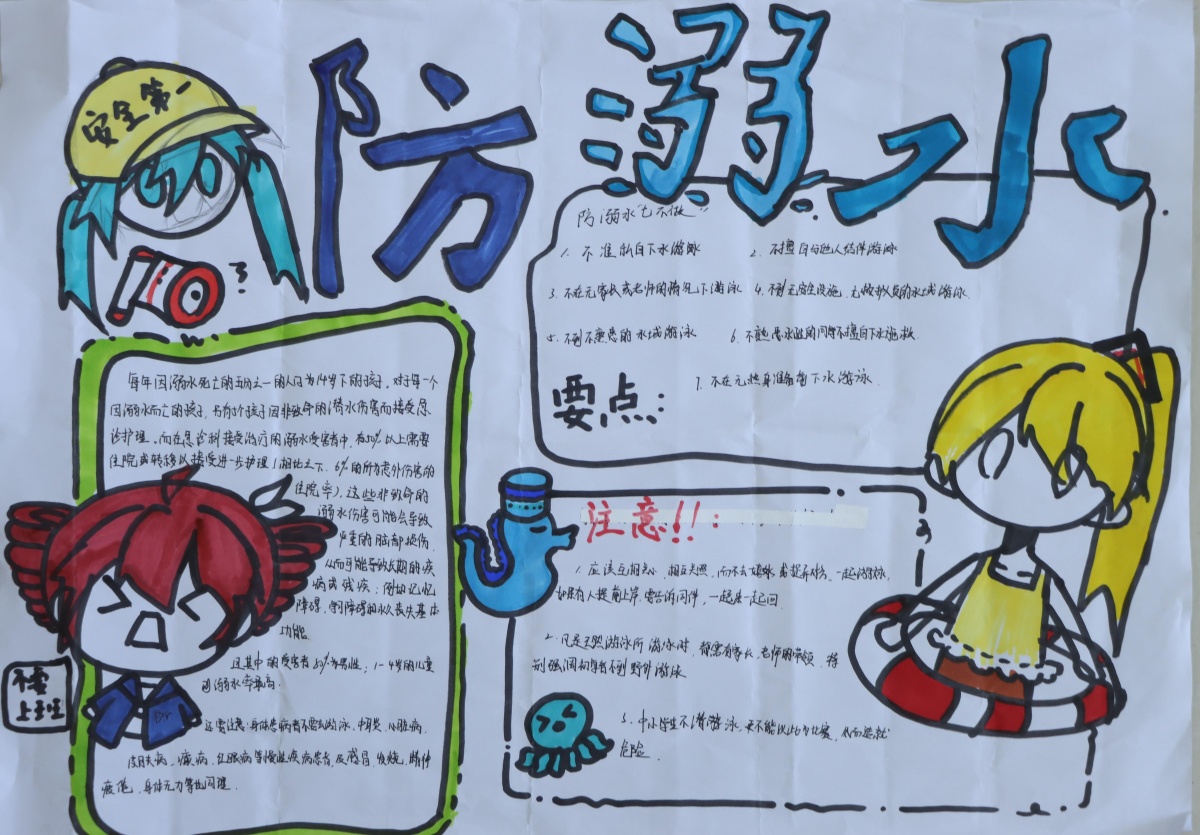 防溺水
安全第一
防溺水"七不做"
1. 不准私自下水游泳
2. 不擅自与他人结伴游泳
3. 不在无家长或老师的情况下游泳
4. 不到无安全设施、无救护人员的水域游泳.
5. 不到不熟悉的水域游泳
6. 不熟悉水性的同学不擅自下水施救.
7. 不在无热身准备下水游泳.
要点:
每年因溺水死亡的五分之一的人口为14岁下的孩子. 对于每一个
因溺水而亡的孩子, 另有5个孩子因非致命的潜水伤害而接受急
诊护理. 而在急诊科接受治疗的溺水受害者中, 有50%以上需要
住院或转移以接受进一步护理(相比之下, 6%的所有意外伤害的
住院率), 这些非致命的
溺水伤害可能会导致
严重的脑部损伤,
从而可能导致长期的疾
病或残疾: 例如记忆
障碍, 学习障碍和永久丧失基本
功能.
且其中的受害者50%为男性; 1-4岁的儿童
溺水率最高.
还需注意: 身体患病者不要去游泳, 中耳炎, 心脏病,
皮肤病, 癫痫, 红眼病等慢性疾病患者, 及感冒, 发烧, 精神
疲倦, 身体无力等
注意!!:
1. 应该互相关心, 相互关照, 而不去嬉水
如果有人提前上岸, 要告诉同伴, 一起去一起回.
2. 凡是天然游泳所游泳时, 都需有家长, 老师的带领, 特
别强调初学者不到野外游泳
3. 中小学生不潜游泳, 更不能以此为比赛, 从而造就
危险.